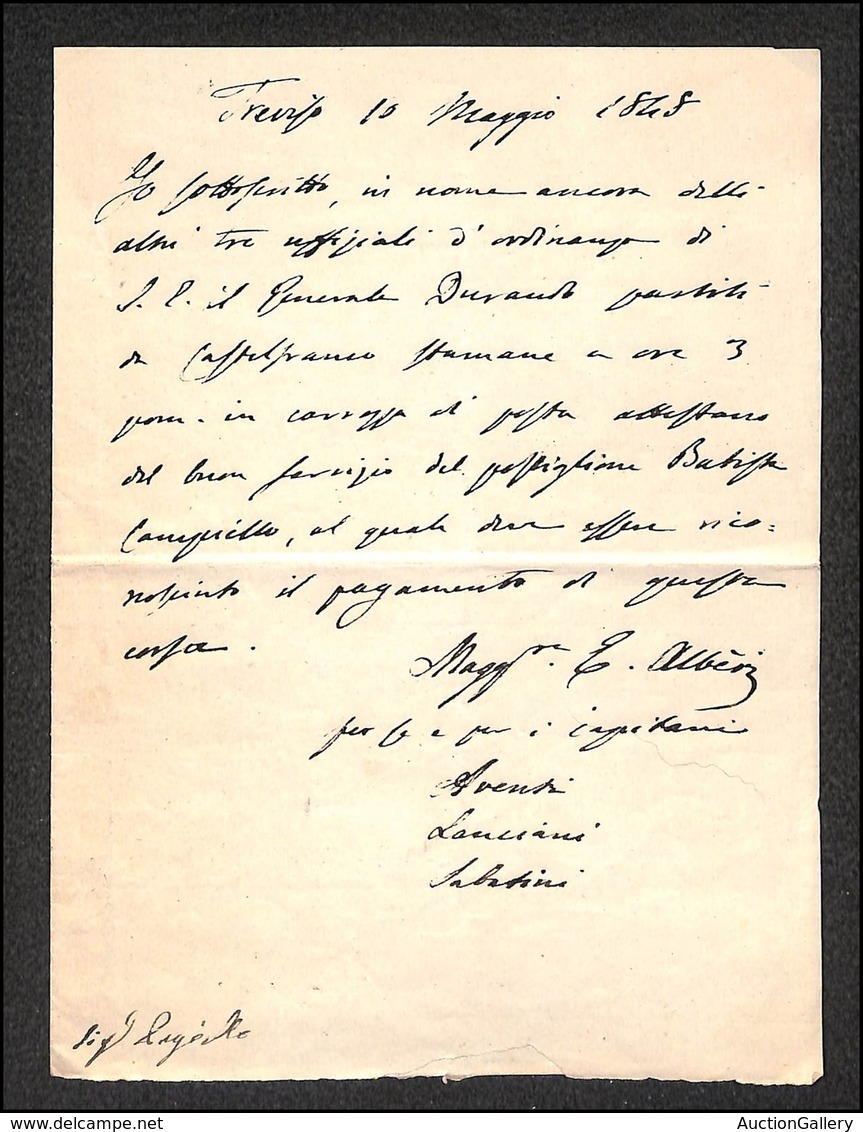 Treviso 10 Maggio 1848
Io sottoscritto, in nome ancora delli
altri tre uffiziali d'ordinanza di
S. E. il Generale Durando partiti
da Castelfranco stamane a ore 3
pom. in carrozza di posta attestano
del buon servizio del postiglione Batista
Campicello, al quale deve essere rico=
nosciuto il pagamento di questa
corsa.
Magg.re E. Albèri
per se e per i capitani
Aventi
Lanciani
Sabatini
AuctionGallery